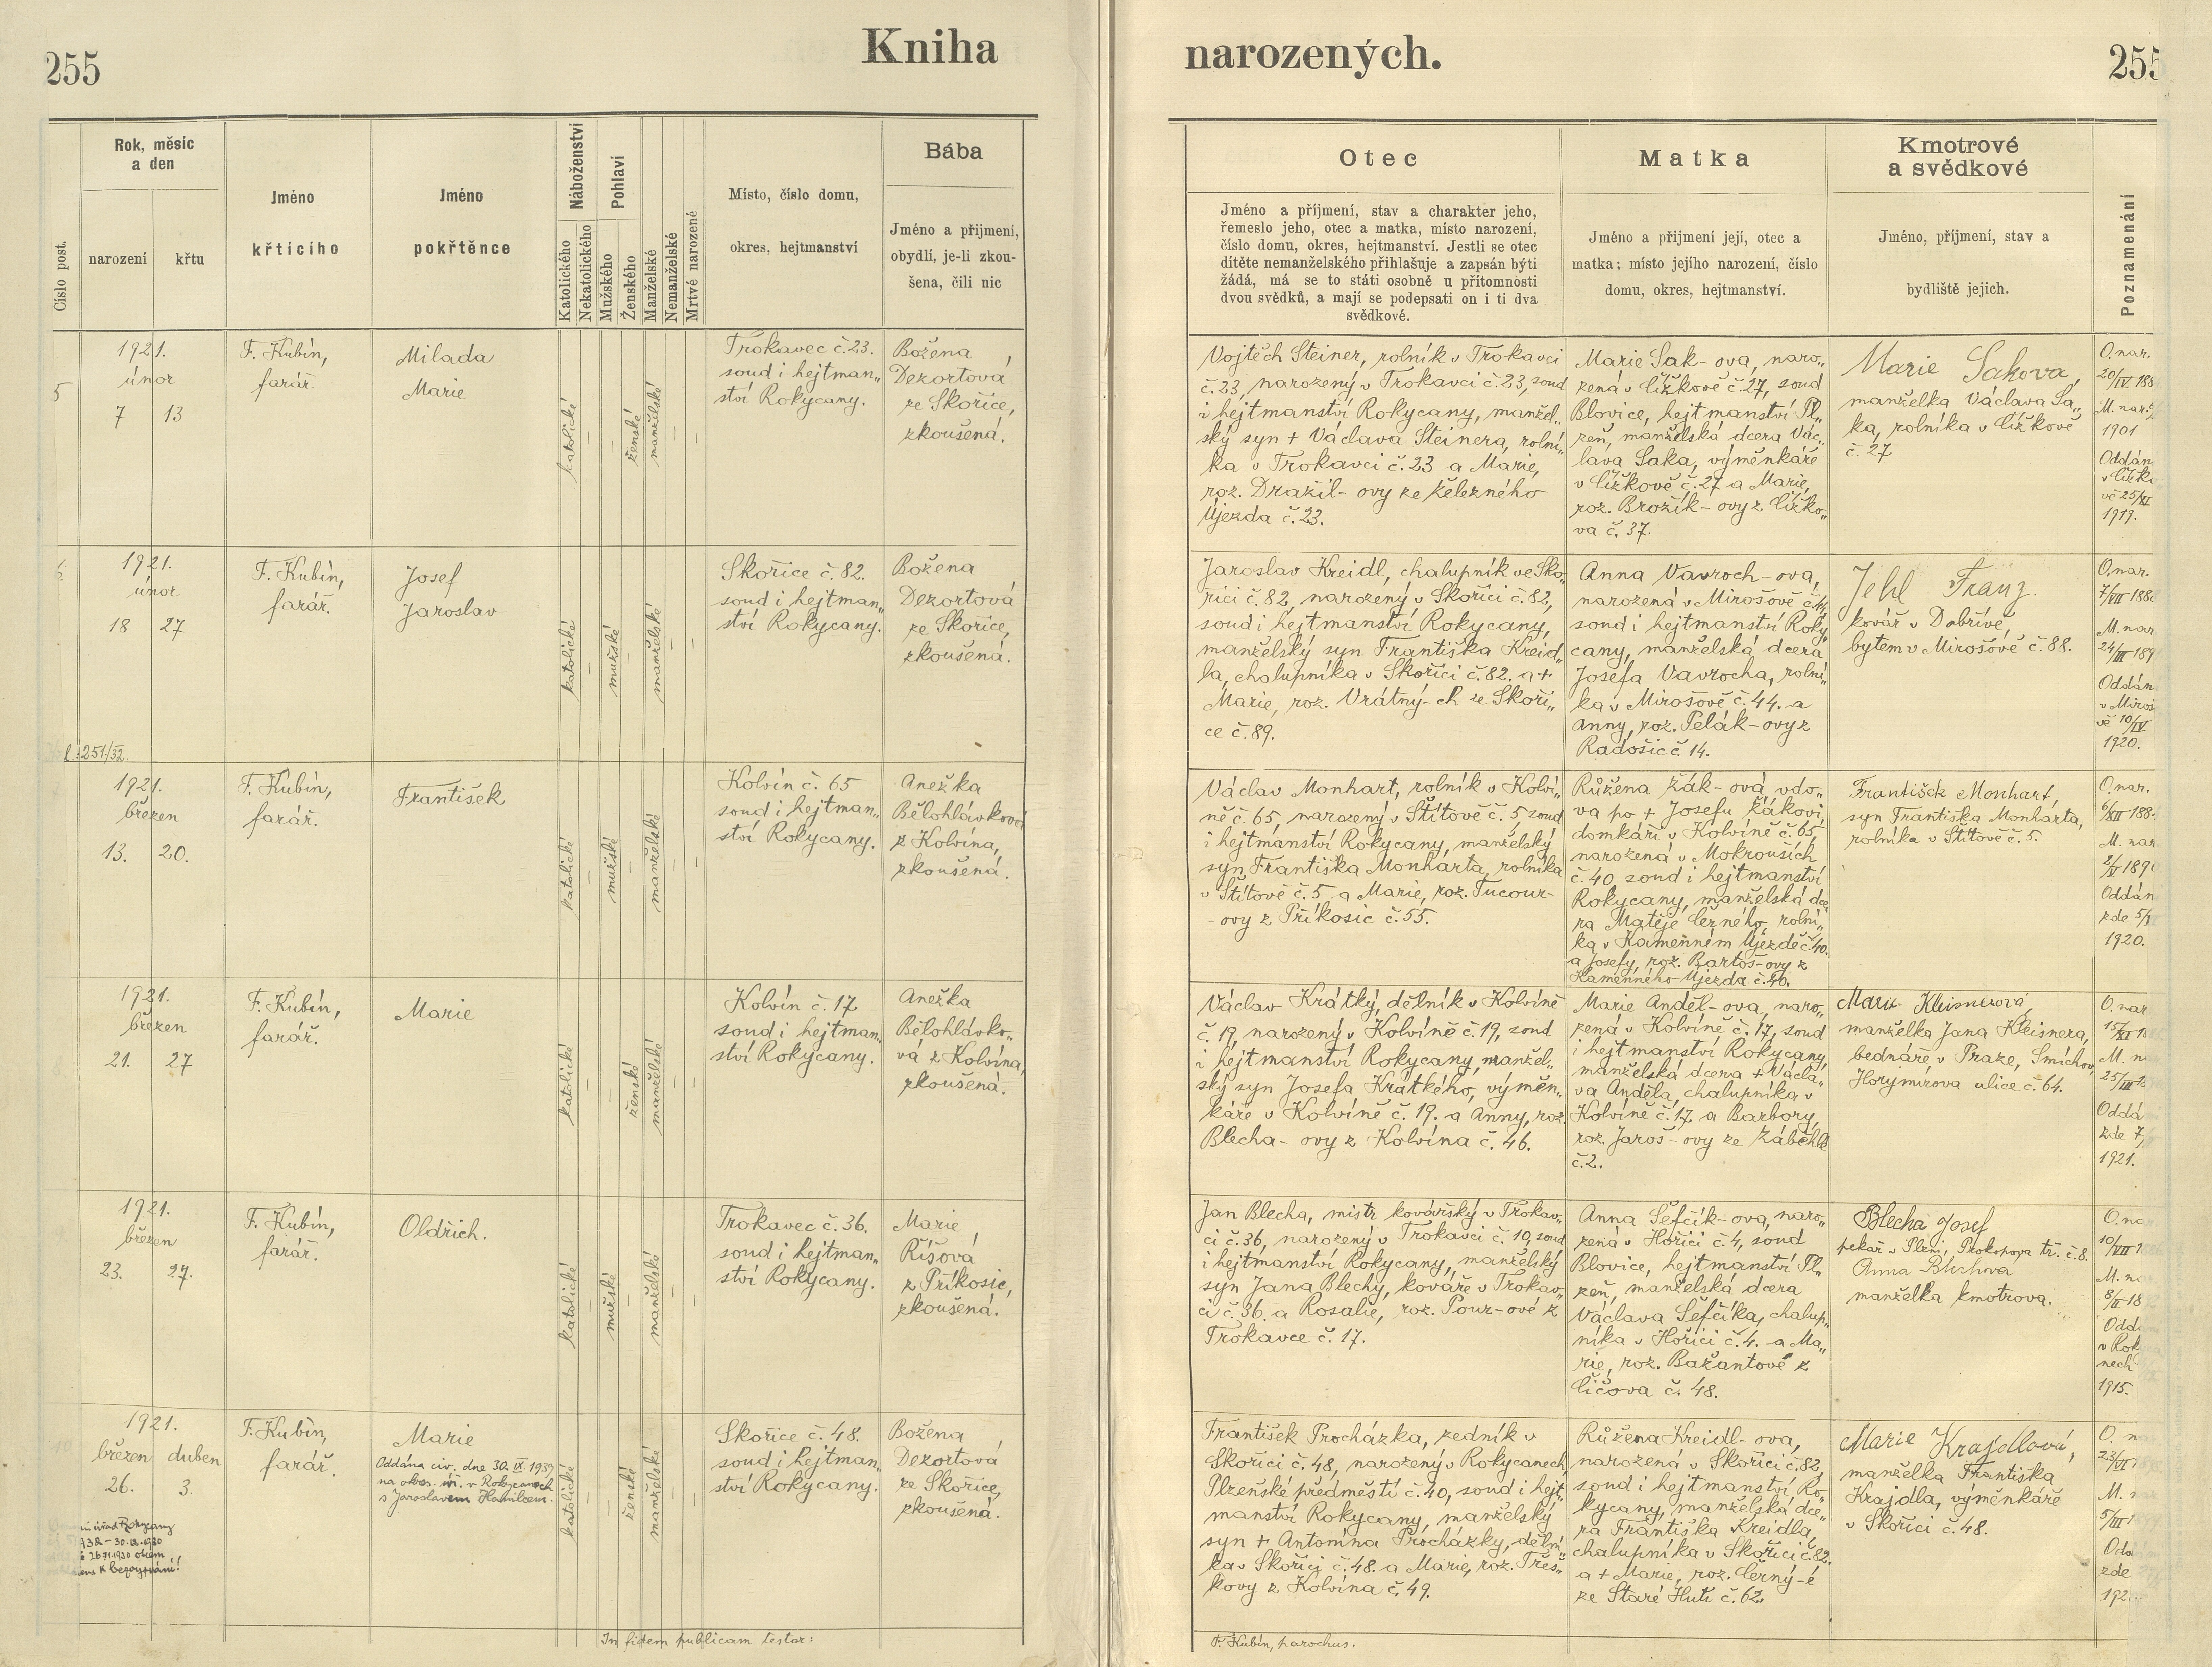 255
Kniha
narozených.
255
Rok, měsíc
a den
narození
křtu
Číslo post.
Jméno
křtícího
Jméno
pokřtěnce
Náboženství
Katolického
Nekatolického
Pohlaví
Mužského
Ženského
Manželské
Nemanželské
Mrtvé narozené
Místo, číslo domu,
okres, hejtmanství
Bába
Jméno a příjmení,
obydlí, je-li zkou-
šena, čili nic
Otec
Jméno a příjmení, stav a charakter jeho,
řemeslo jeho, otec a matka, místo narození,
číslo domu, okres, hejtmanství. Jestli se otec
dítěte nemanželského přihlašuje a zapsán býti
žádá, má se to státi osobně u přítomnosti
dvou svědků, a mají se podepsati on i ti dva
svědkové.
Matka
Jméno a přijmení její, otec a
matka; místo jejího narození, číslo
domu, okres, hejtmanství.
Kmotrové
a svědkové
Jméno, příjmení, stav a
bydliště jejich.
Poznamenání
5
1921.
únor
7 13
F. Kubín,
farář.
Milada
Marie
katolické
–
–
ženské
manželské
–
–
Trokavec č. 23.
soud i hejtman„
ství Rokycany.
Božena
Dezortová
ze Skořice,
zkoušená.
Vojtěch Steiner, rolník v Trokavci
č. 23, narozený v Trokavci č. 23, soud
i hejtmanství Rokycany, manžel„
ský syn + Václava Steinera, rolní„
ka v Trokavci č. 23 a Marie,
roz. Dražil- ovy ze Železného
Újezda č. 23.
Marie Sak- ova, naro„
zená v Čížkově č. 27, soud
Blovice, hejtmanství Pl„
zeň, manželská dcera Vác„
lava Saka, výměnkáře
v Čížkově č. 27 a Marie,
roz. Brožík- ovy z Čížko„
va č. 37.
Marie Sakova,
manželka Václava Sa„
ka, rolníka v Čížkově
č. 27
O. nar.
20/IV 188
M. nar.
1901
Oddán
v Čížko
vě 25/XI
1919.
1921.
únor
18 27
F. Kubín,
farář.
Josef
Jaroslav
katolické
–
mužské
–
manželské
–
–
Skořice č. 82.
soud i hejtman„
ství Rokycany.
Božena
Dezortová
ze Skořice,
zkoušená.
Jaroslav Kreidl, chalupník ve Sko„
řici č. 82, narozený v Skořici č. 82,
soud i hejtmanství Rokycany,
manželský syn Františka Kreid„
la, chalupníka v Skořici č. 82. a +
Marie, roz. Vrátný- ch ze Skoři„
ce č. 89.
Anna Vavroch- ova,
narozená v Mirošově č. 44,
soud i hejtmanství Roky„
cany, manželská dcera
Josefa Vavrocha, rolní„
ka v Mirošově č. 44. a
Anny, roz. Pelák- ovy z
Radošic č. 14.
Jehl Franz.
kovář v Dobřívě,
bytem v Mirošově č. 88.
O. nar.
7/VII 188
M. nar
24/III 189
Oddán
v Miroš
vě 10/IV
1920.
č. 251/32.
1921.
březen
13. 20.
F. Kubín,
farář.
František
katolické
–
mužské
–
manželské
–
–
Kolvín č. 65
soud i hejtman„
ství Rokycany.
Anežka
Bělohlávková
z Kolvína,
zkoušená.
Václav Monhart, rolník v Kolví„
ně č. 65, narozený v Štítově č. 5 soud
i hejtmanství Rokycany, manželský
syn Františka Monharta, rolníka
v Štítově č. 5 a Marie, roz. Tucour-
- ovy z Příkosic č. 55.
Růžena Žák- ová, vdo„
va po + Josefu Žákovi,
domkáři v Kolvíně č. 65,
narozená v Mokrouších
č. 40, soud i hejtmanství
Rokycany, manželská dce„
ra Matěje Černého, rolní„
ka v Kamenném Újezdě č. 40.
a Josefy, roz. Bartoš- ovy z
Kamenného Újezda č. 40.
František Monhart,
syn Františka Monharta,
rolníka v Štítově č. 5.
O. nar.
6/XII 188
M. nar
2/V 189
Oddán
zde 5/
1920.
1921.
březen
21. 27
F. Kubín,
farář.
Marie
katolické
–
–
ženské
manželské
–
–
Kolvín č. 17
soud i hejtman„
ství Rokycany.
Anežka
Bělohlávko„
vá z Kolvína,
zkoušená.
Václav Krátký, dělník v Kolvíně
č. 19, narozený v Kolvíně č. 19, soud
i hejtmanství Rokycany, manžel„
ský syn Josefa Krátkého, výměn„
káře v Kolvíně č. 19. a Anny, roz.
Blecha- ovy z Kolvína č. 46.
Marie Anděl- ova, naro„
zená v Kolvíně č. 17, soud
i hejtmanství Rokycany,
manželská dcera + Václa„
va Anděla, chalupníka v
Kolvíně č. 17 a Barbory,
roz. Jaroš- ovy ze Záběhlé
č. 2.
Marie Kleisnerová,
manželka Jana Kleisnera,
bednáře v Praze, Smíchov,
Horymírova ulice č. 64.
O. nar
15/XI 18
M. na
25/III 18
Oddá
zde 7/
1921.
1921.
březen
23. 27.
F. Kubín,
farář.
Oldřich.
katolické
–
mužské
–
manželské
–
–
Trokavec č. 36.
soud i hejtman„
ství Rokycany.
Marie
Říšová
z Příkosic,
zkoušená.
Jan Blecha, mistr kovářský v Trokav„
ci č. 36, narozený v Trokavci č. 10, soud
i hejtmanství Rokycany, manželský
syn Jana Blechy, kováře v Trokav„
ci č. 36. a Rosalie, roz. Pour- ové z
Trokavce č. 17.
Anna Šefčík- ova, naro„
zená v Hořici č. 4, soud
Blovice, hejtmanství Pl„
zeň, manželská dcera
Václava Šefčíka, chalup„
níka v Hořici č. 4. a Ma„
rie, roz. Bažantové z
Číčova č. 48.
Blecha Josef
pekař v Plzni, Prokopova tř. č. 8.
Anna Blechová
manželka kmotrova.
O. na
10/VII 1
M. na
8/II 18
Odd
v Rok
nech
1915.
1921.
březen duben
26. 3.
F. Kubín,
farář.
Marie
Oddána civ. dne 30. IX. 1939
na okres. úř. v Rokycanech
s Jaroslavem
katolické
–
–
ženské
manželské
–
–
Skořice č. 48.
soud i hejtman„
ství Rokycany.
Božena
Dezortová
ze Skořice,
zkoušená.
František Procházka, zedník v
Skořici č. 48, narozený v Rokycanech,
Plzeňské předměstí č. 40, soud i hejt„
manství Rokycany, manželský
syn + Antonína Procházky, dělní„
ka v Skořici č. 48. a Marie, roz. Třeš„
kovy z Kolvína č. 49.
Růžena Kreidl- ova,
narozena v Skořici č. 82,
soud i hejtmanství Ro„
kycany, manželská dce„
ra Františka Kreidla,
chalupníka v Skořici č. 82.
a + Marie, roz. Černý- é
ze Staré Huti č. 62.
Marie Krajdlová,
manželka Františka
Krajdla, výměnkáře
v Skořici č. 48.
O. n
23/VI
M.
5/III
Od
zde
192
úřad Rokycany
In fidem publicam testor:
F. Kubín, parochus.